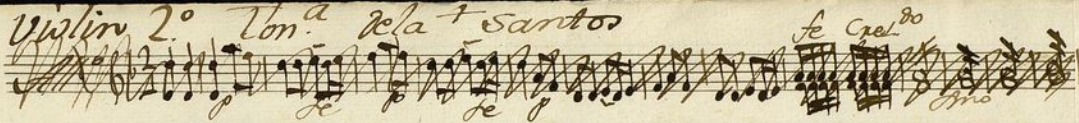 Violin 2.º Ton.ª Dela + Santos
fe Cresdo
p fe p fe p fmo